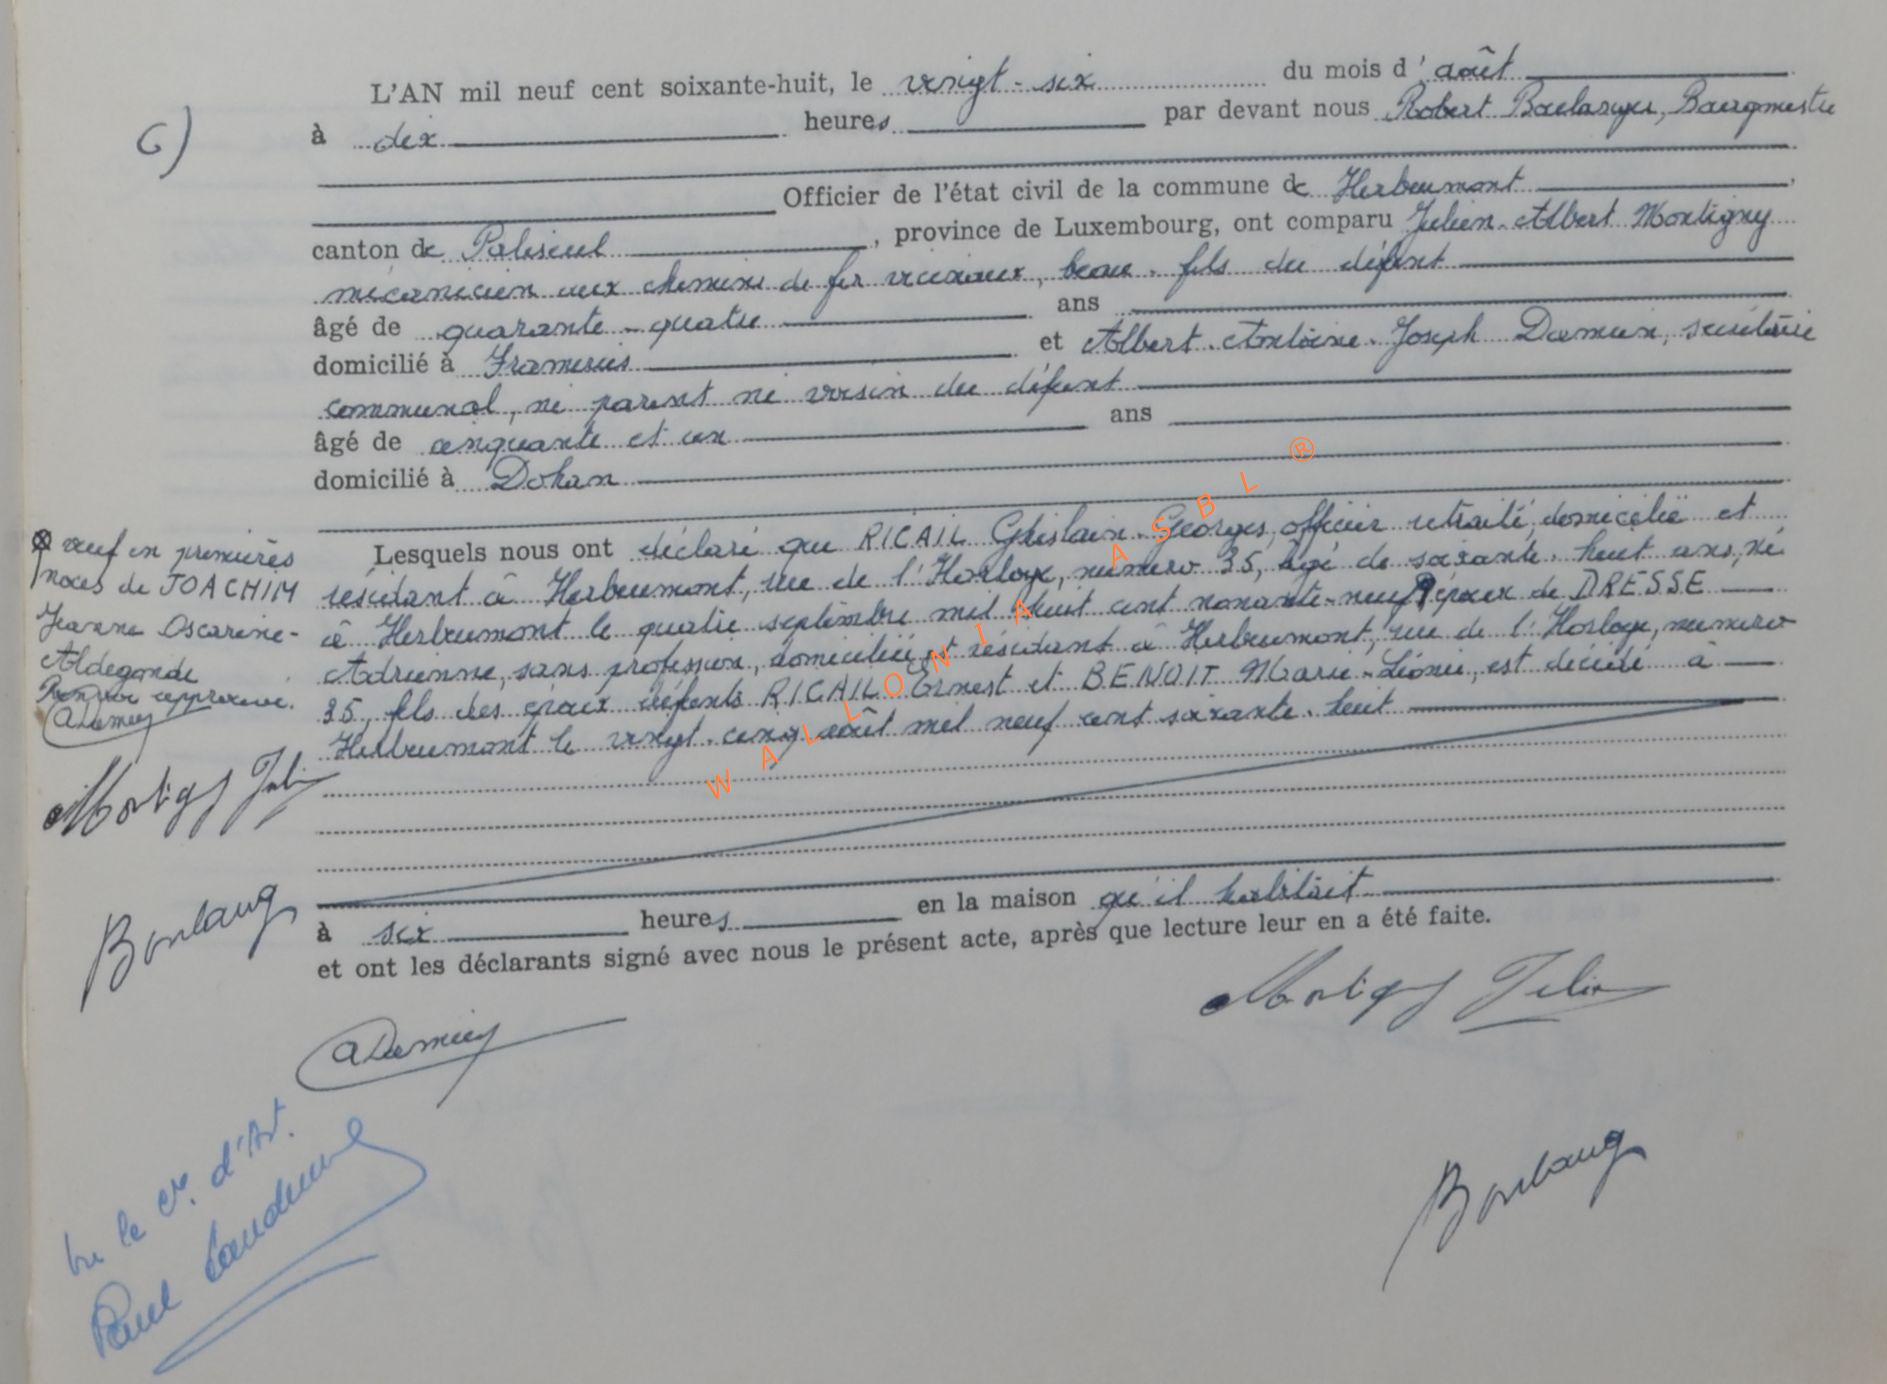 6)
L'AN mil neuf cent soixante-huit, le vingt-six du mois d'août
à dix heures par devant nous Robert Boulanger, Bourgmestre
Officier de l'état civil de la commune de Herbeumont,
canton de Paliseul, province de Luxembourg, ont comparu Julien-Albert Montigny
mécanicien aux chemins de fer vicinaux, beau-fils du défunt
âgé de quarante-quatre ans
domicilié à Frameries et Albert-Antoine-Joseph Damien, secrétaire
communal, ni parent ni voisin du défunt
âgé de cinquante et un ans
domicilié à Dohan
Lesquels nous ont déclaré que RICAIL Ghislain-Georges, officier retraité, domicilié et
résidant à Herbeumont, rue de l'Horloge, numéro 35, âgé de soixante-huit ans, né
à Herbeumont le quatre septembre mil huit cent nonante-neuf, époux de DRESSE
Adrienne, sans profession, domiciliée et résidant à Herbeumont, rue de l'Horloge, numéro
35, fils des époux défunts RICAIL Ernest et BENOIT Marie-Léonie, est décédé à
Herbeumont le vingt-cinq août mil neuf cent soixante-huit
à six heures en la maison qu'il habitait
et ont les déclarants signé avec nous le présent acte, après que lecture leur en a été faite.
veuf en premières
noces de JOACHIM
Jeanne Oscarine-
Aldegonde
Renvoi approuvé.
ADamien
Montigny Julien
Boulanger
ADamien
Montigny Julien
Boulanger
Vu le d'Ar.
Paul
WALLONIA ASBL ®